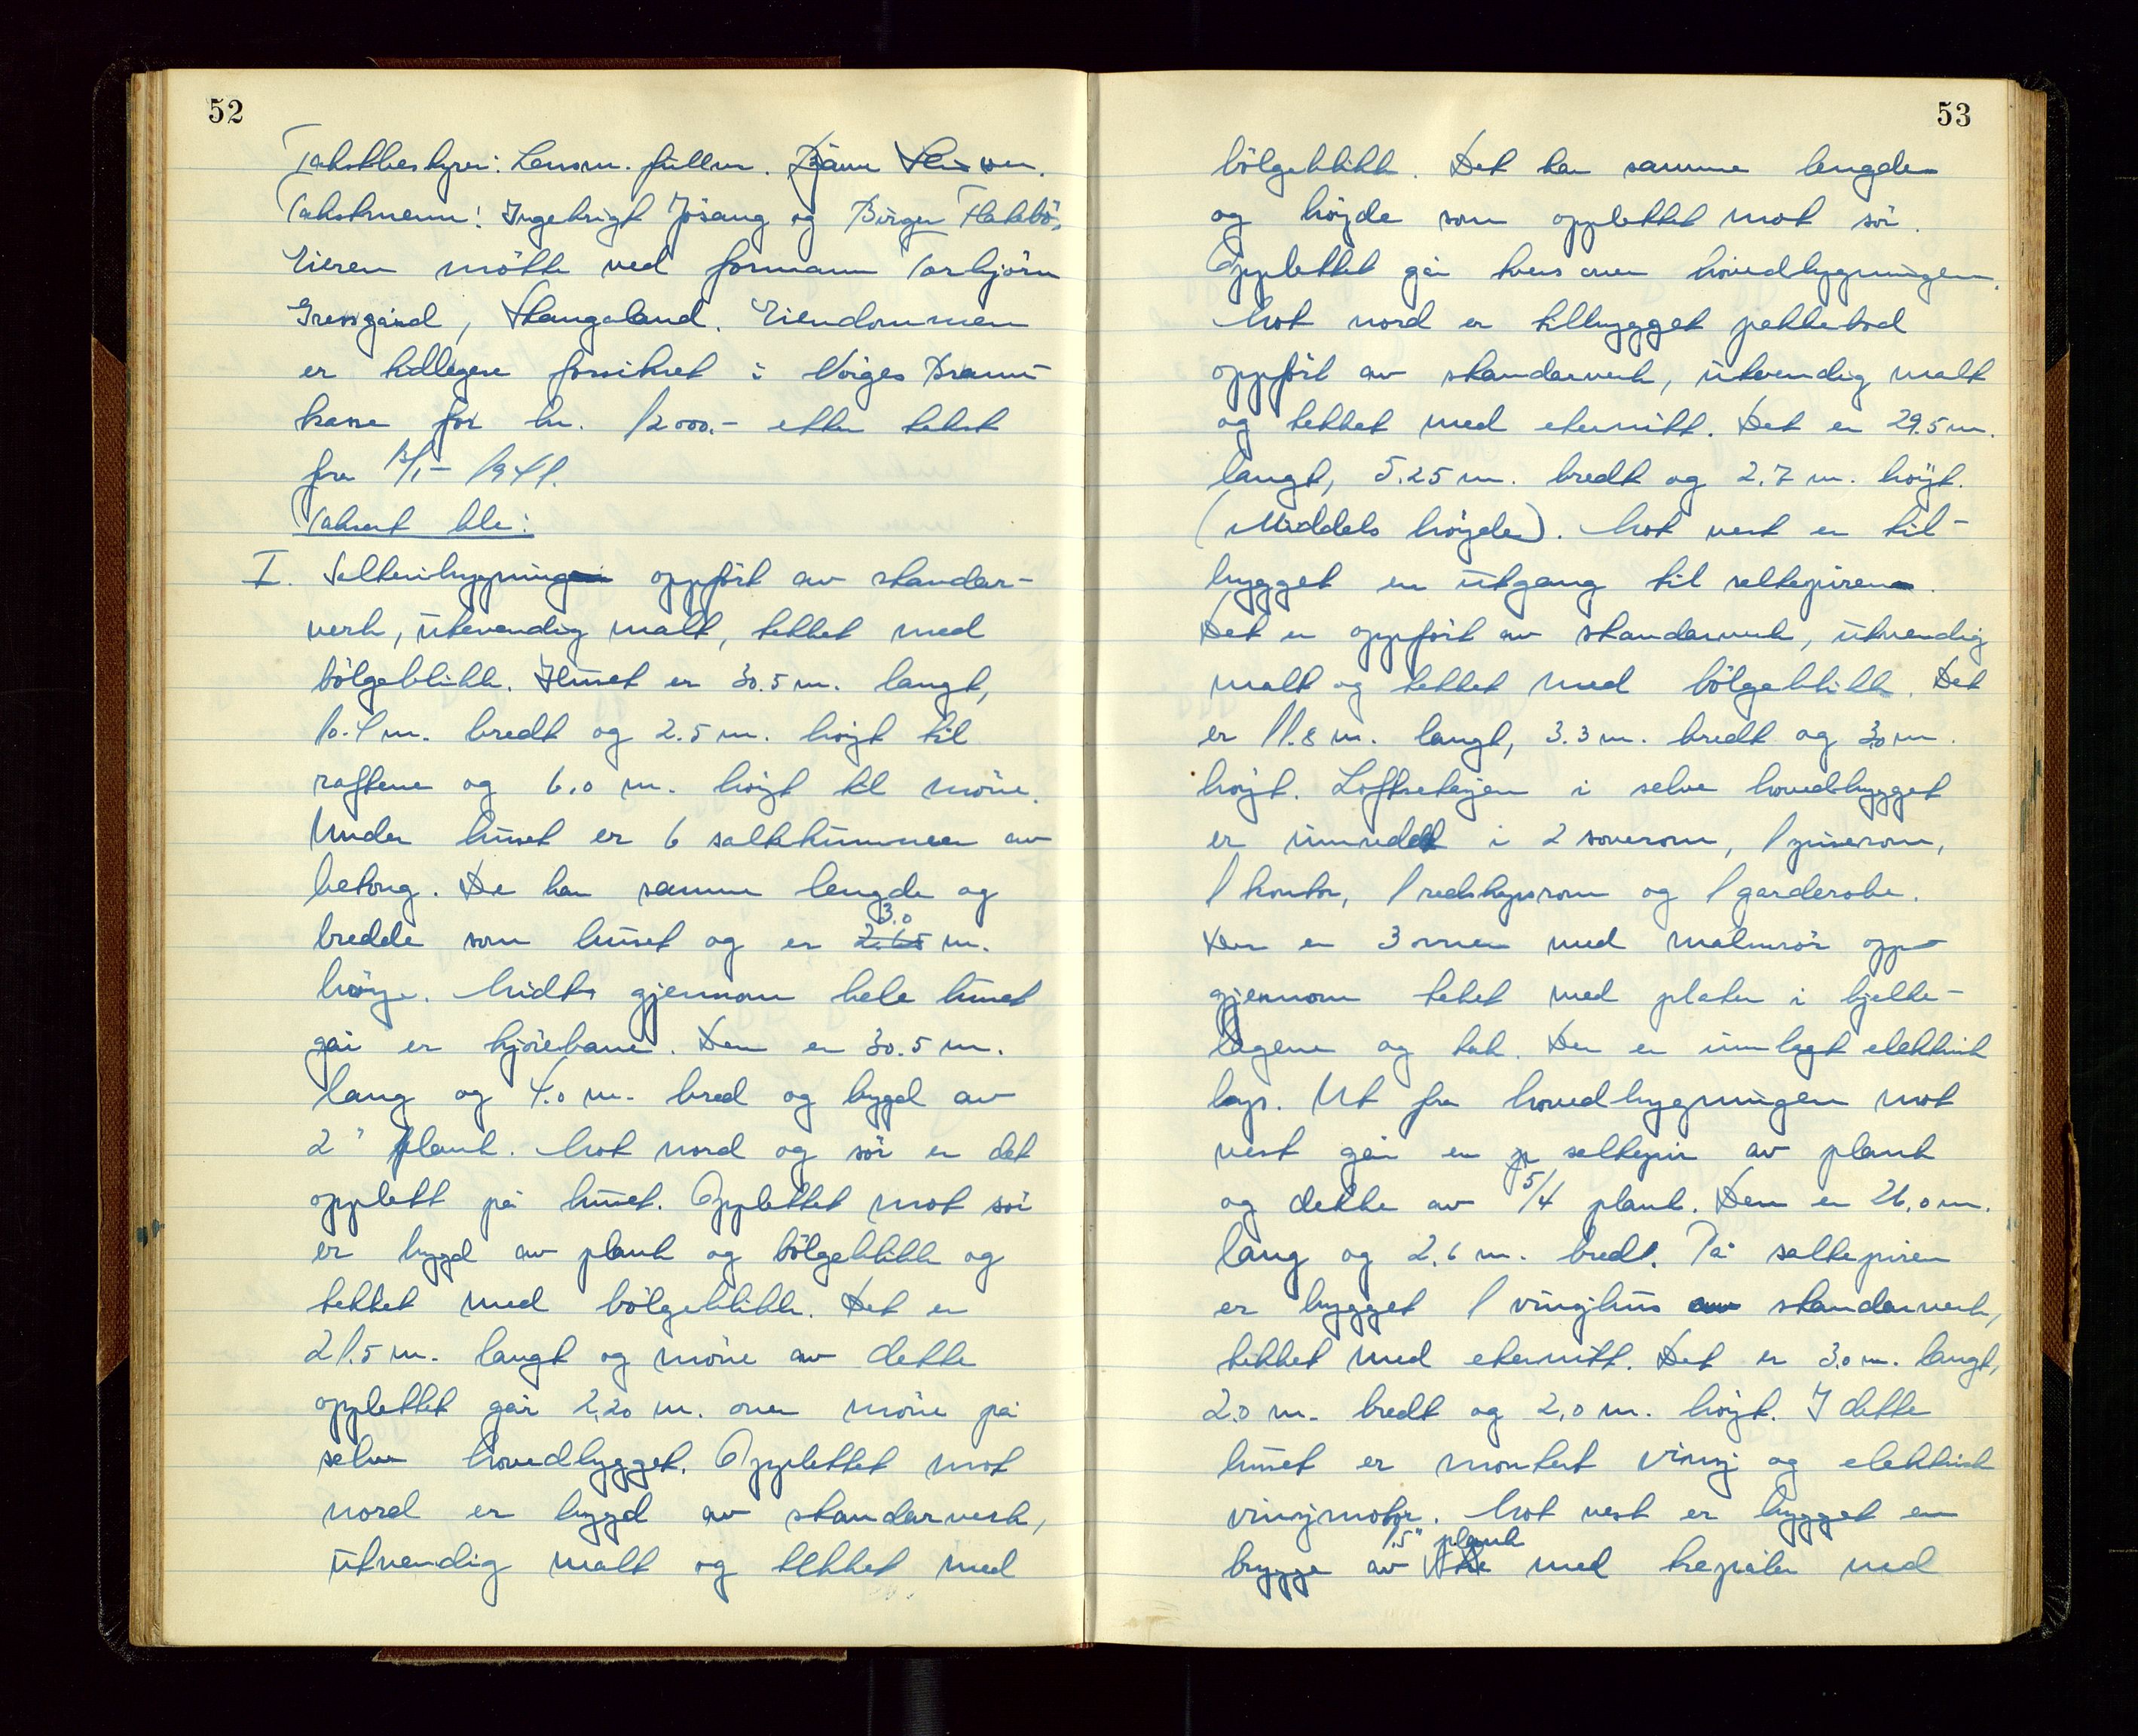 52
Takstbestyrer: Lensm. fullm. Bjarne
Takstmenn: Ingebrigt Jøsang og Birger Flatebö.
Eieren mötte ved formann Torbjörn
Gressgård, Stangaland. Eiendommen
er tidligere forsikret i Norges Brann-
kasse for kr. 12000.- etter takst
fra 13/1- 1941.
Taksert ble:
I. Salteribygning oppfört av stander-
verk, utvendig malt, tekket med
bölgeblikk. Huset er 30.5 m. langt,
10.4 m. bredt og 2.5 m. höyt til
raftene og 6.0 m. höyt til möne.
Under huset er 6 saltkummer av
betong. De har samme lengde og
bredde som huset og er 3.0 m.
höye. Midt gjennom hele huset
går er kjörebane. Den er 30.5 m.
lang og 4.0 m. bred og bygd av
2" plank. Mot nord og sör er det
opplett på huset. Opplettet mot sör
er bygd av plank og bölgeblikk og
tekket med bölgeblikk. Det er
21.5 m. langt og möne av dette
opplettet går 2,20 m. over möne på
selve hovedbygget. Opplettet mot
nord er bygd av standerverk,
utvendig malt og tekket med
53
bölgeblikk. Det har samme lengde
og höyde som opplettet mot sör.
Opplettet går tvers over hovedbygningen.
Mot nord er tilbygget pakkebod
oppfört av standerverk, utvendig malt
og tekket med eternitt. Det er 29.5 m.
langt, 5.25 m. bredt og 2.7 m. höyt.
(Middels höyde). Mot vest er til-
bygget en utgang til saltepiren.
Det er oppfört av standerverk, utvendig
malt og tekket med bölgeblikk. Det
er 11.8 m. langt, 3.3 m. bredt og 3.0 m.
höyt. Loftsetasjen i selve hovedbygget
er innredet i 2 soverom, 1 spiserom,
1 kontor, 1 redskapsrom og 1 garderobe.
Der er 3 ovner med malmrör opp
gjennom taket med plater i bjelke-
lagene og tak. Der er innlagt elektrisk
lys. Ut fra hovedbygningen mot
vest går en saltepir av plank
og dekke av 5/4 plank. Den er 26,0 m.
lang og 2,6 m. bred. På saltepiren
er bygget 1 vinsjhus av standerverk,
tekket med eternitt. Det er 3.0 m. langt,
2.0 m. bredt og 2,0 m. höyt. I dette
huset er montert vinsj og elektrisk
vinsjmotor. Mot vest er bygget en
brygge av 1,5" plank med trepæler ved